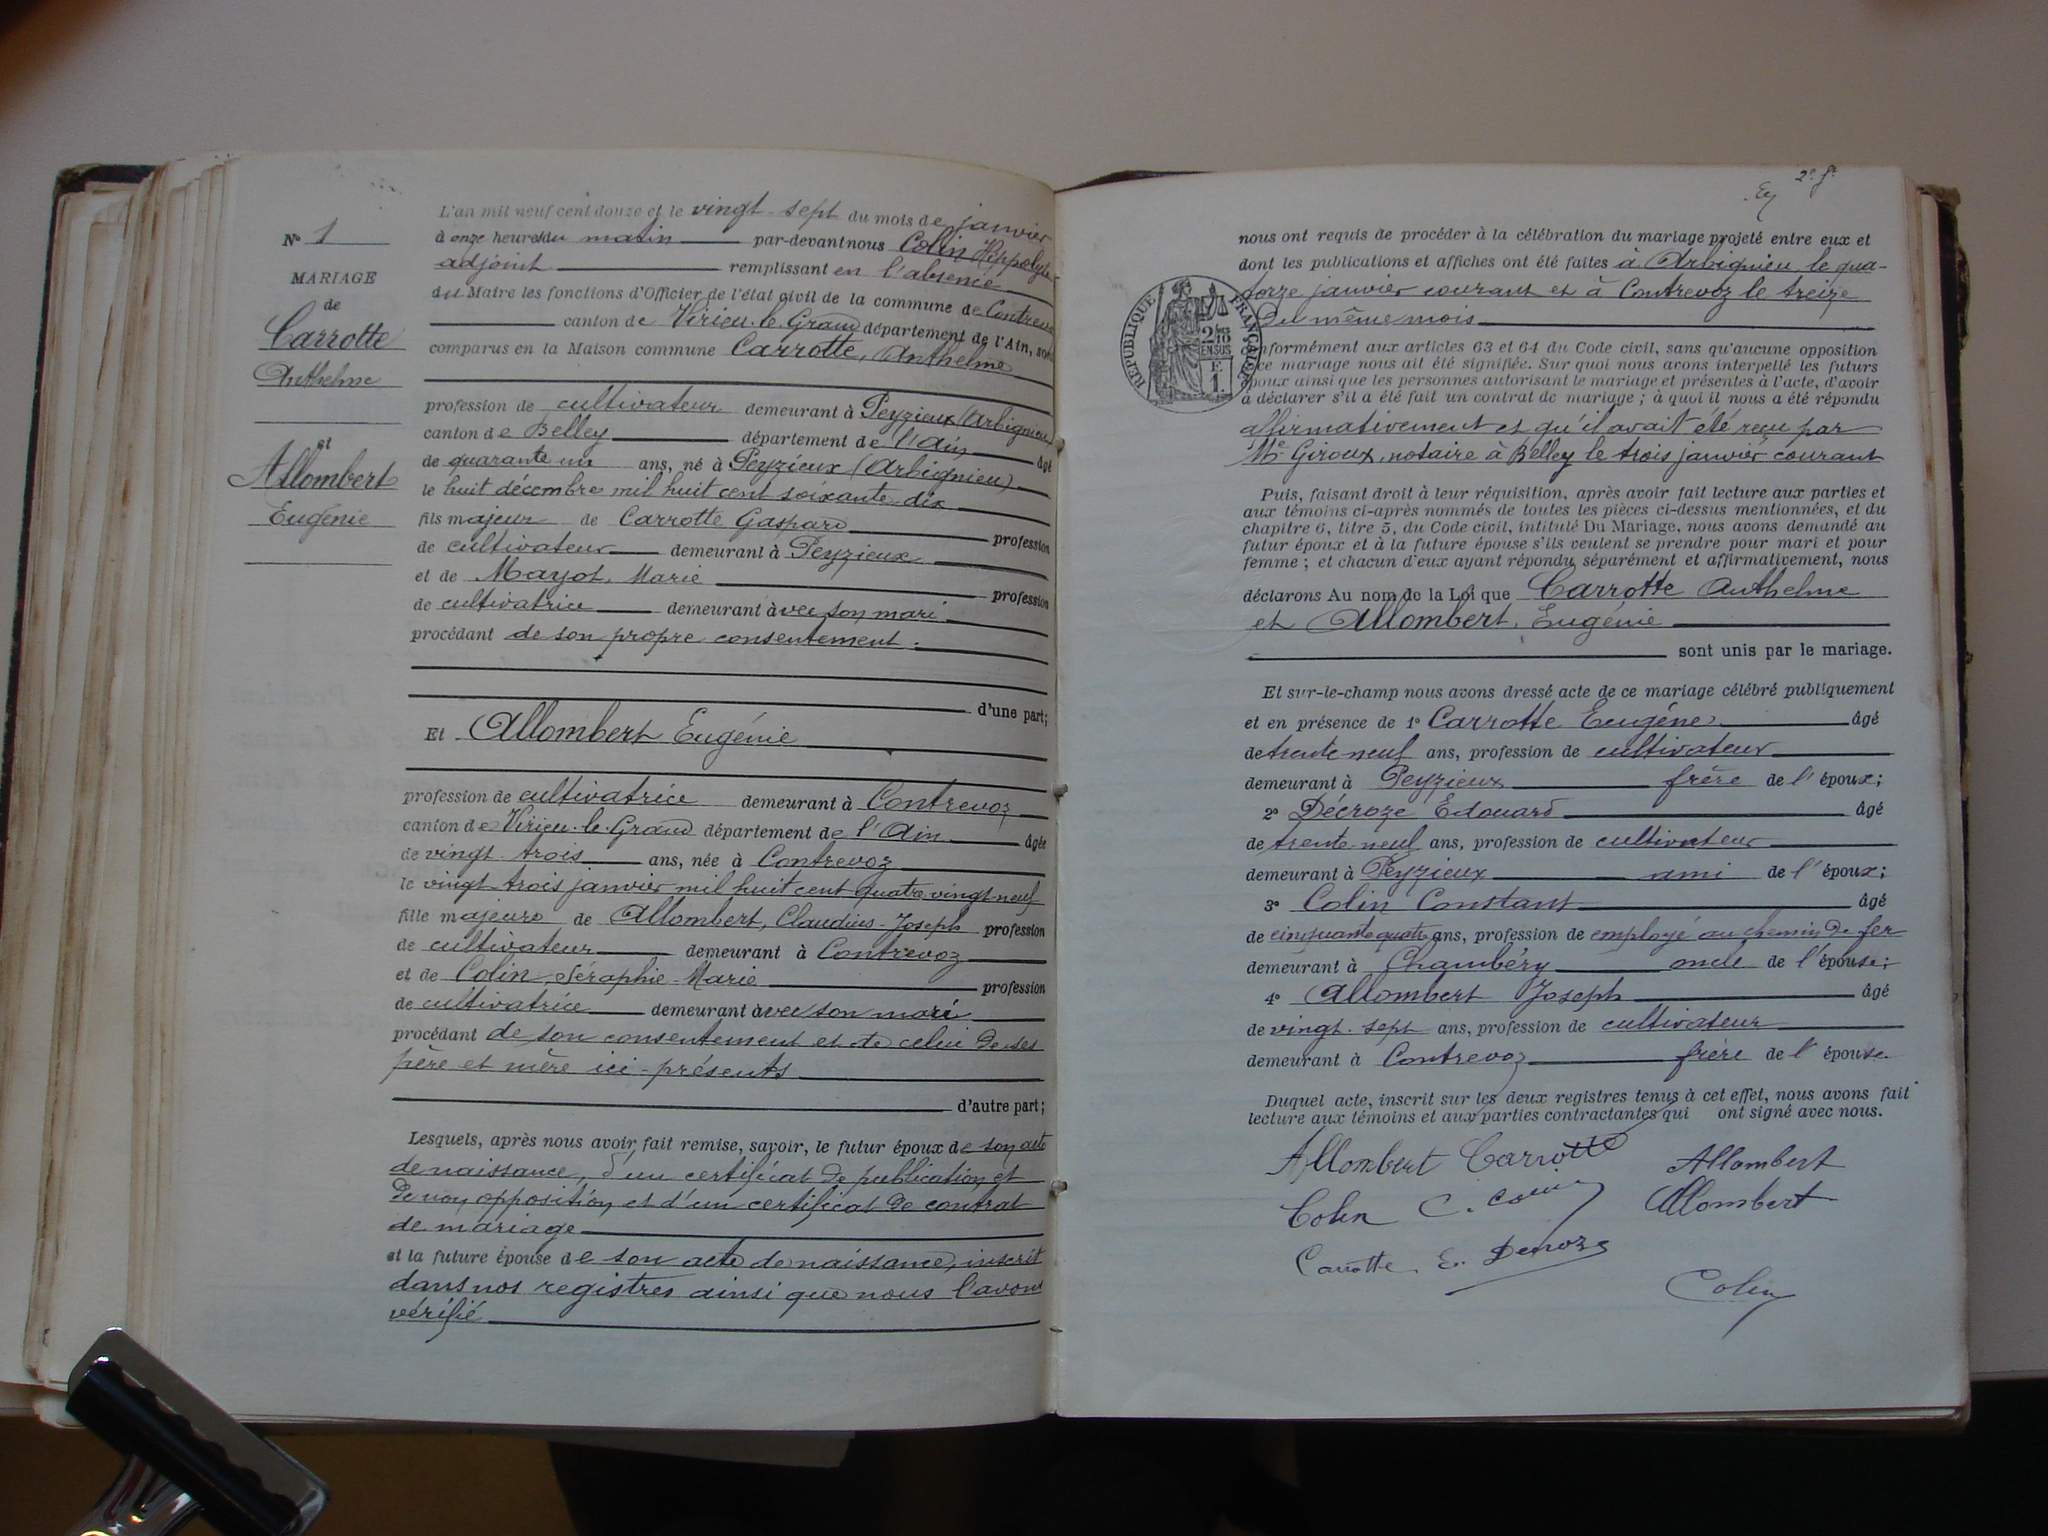 N° 1
MARIAGE
de
Carrotte
Anthelme
et
Allombert
Eugénie
L'an mil neuf cent douze et le vingt-sept du mois de janvier
à onze heures du matin par-devant nous Colin Hippolyte
adjoint remplissant en l'absence
du Maire les fonctions d'Officier de l'état civil de la commune de Contrevoz
canton de Virieu-le-Grand département de l'Ain, sont
comparus en la Maison commune Carrotte, Anthelme
profession de cultivateur demeurant à Peyzieux (Arbignieu)
canton de Belley département de l'Ain âgé
de quarante un ans, né à Peyzieux (Arbignieu)
le huit décembre mil huit cent soixante-dix
fils majeur de Carrotte Gaspard profession
de cultivateur demeurant à Peyzieux
et de Mayot, Marie profession
de cultivatrice demeurant avec son mari
procédant de son propre consentement.
d'une part;
Et Allombert Eugénie
profession de cultivatrice demeurant à Contrevoz
canton de Virieu-le-Grand département de l'Ain âgée
de vingt-trois ans, née à Contrevoz
le vingt-trois janvier mil huit cent quatre-vingt-neuf
fille majeure de Allombert, Claudius-Joseph profession
de cultivateur demeurant à Contrevoz
et de Colin, Séraphie-Marie profession
de cultivatrice demeurant avec son mari
procédant de son consentement et de celui de ses
père et mère ici-présents
d'autre part;
Lesquels, après nous avoir fait remise, savoir, le futur époux de son acte
de naissance, d'un certificat de publication et
de non opposition et d'un certificat de contrat
de mariage
et la future épouse de son acte de naissance, inscrit
dans nos registres ainsi que nous l'avons
vérifié
2e f.
nous ont requis de procéder à la célébration du mariage projeté entre eux et
dont les publications et affiches ont été faites à Arbignieu le qua-
torze janvier courant et à Contrevoz le treize
du même mois
RÉPUBLIQUE FRANÇAISE
2/10
EN SUS
F.
1.
conformément aux articles 63 et 64 du Code civil, sans qu'aucune opposition
à ce mariage nous ait été signifiée. Sur quoi nous avons interpellé les futurs
époux ainsi que les personnes autorisant le mariage et présentes à l'acte, d'avoir
à déclarer s'il a été fait un contrat de mariage; à quoi il nous a été répondu
affirmativement et qu'il avait été reçu par
Me Giroux, notaire à Belley le trois janvier courant
Puis, faisant droit à leur réquisition, après avoir fait lecture aux parties et
aux témoins ci-après nommés de toutes les pièces ci-dessus mentionnées, et du
chapitre 6, titre 5, du Code civil, intitulé Du Mariage, nous avons demandé au
futur époux et à la future épouse s'ils veulent se prendre pour mari et pour
femme; et chacun d'eux ayant répondu séparément et affirmativement, nous
déclarons Au nom de la Loi que Carrotte Anthelme
et Allombert, Eugénie
sont unis par le mariage.
Et sur-le-champ nous avons dressé acte de ce mariage célébré publiquement
et en présence de 1° Carrotte Eugène âgé
de trente-neuf ans, profession de cultivateur
demeurant à Peyzieux frère de l'époux;
2° Décroze Edouard âgé
de trente-neuf ans, profession de cultivateur
demeurant à Peyzieux ami de l'époux;
3° Colin Constant âgé
de cinquante quatre ans, profession de employé au chemin de fer
demeurant à Chambéry oncle de l'épouse;
4° Allombert Joseph âgé
de vingt-sept ans, profession de cultivateur
demeurant à Contrevoz frère de l'épouse.
Duquel acte, inscrit sur les deux registres tenus à cet effet, nous avons fait
lecture aux témoins et aux parties contractantes qui ont signé avec nous.
Allombert Carrotte Allombert
Colin C. Colin Allombert
Carrotte E. Decroze
Colin